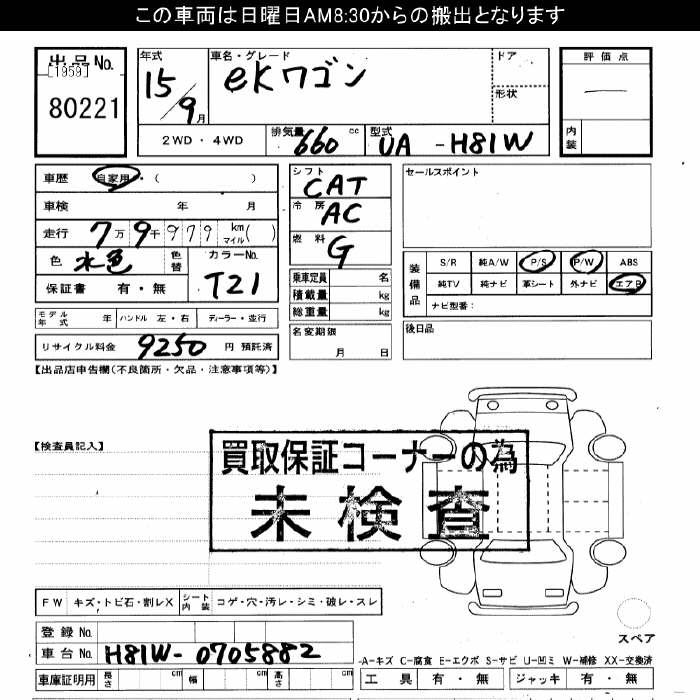 この車両は日曜日AM8:30からの搬出となります
出品No.
[1959]
80221
年式
15/9月
車名・グレード
eKワゴン
ドア
形状
評価点
内装
2WD・4WD
排気量 660 cc
型式 UA-H81W
車歴 自家用・( )
車検 年 月
走行 7万9千979 km マイル( )
色 水色 色替
カラーNo. T21
保証書 有・無
シフト CAT
冷房 AC
燃料 G
乗車定員 名
積載量 kg
総重量 kg
セールスポイント
装備品
S/R 純A/W P/S P/W ABS
純TV 純ナビ 革シート 外ナビ エアB
ナビ型番:
モデル年式 年 ハンドル 左・右 ディーラー・並行
名変期限 月 日
後日品
リサイクル料金 9250 円 預託済
【出品店申告欄(不良箇所・欠品・注意事項等)】
【検査員記入】
買取保証コーナーの為
未検査
FW キズ・トビ石・割レX シート内装 コゲ・穴・汚レ・シミ・破レ・スレ
スペア
登録No.
車台No. H81W-0705882
車庫証明用 長さ cm 幅 cm 高さ cm
-A-キズ C-腐食 E-エクボ S-サビ U-凹ミ W-補修 XX-交換済
工具 有・無 ジャッキ 有・無